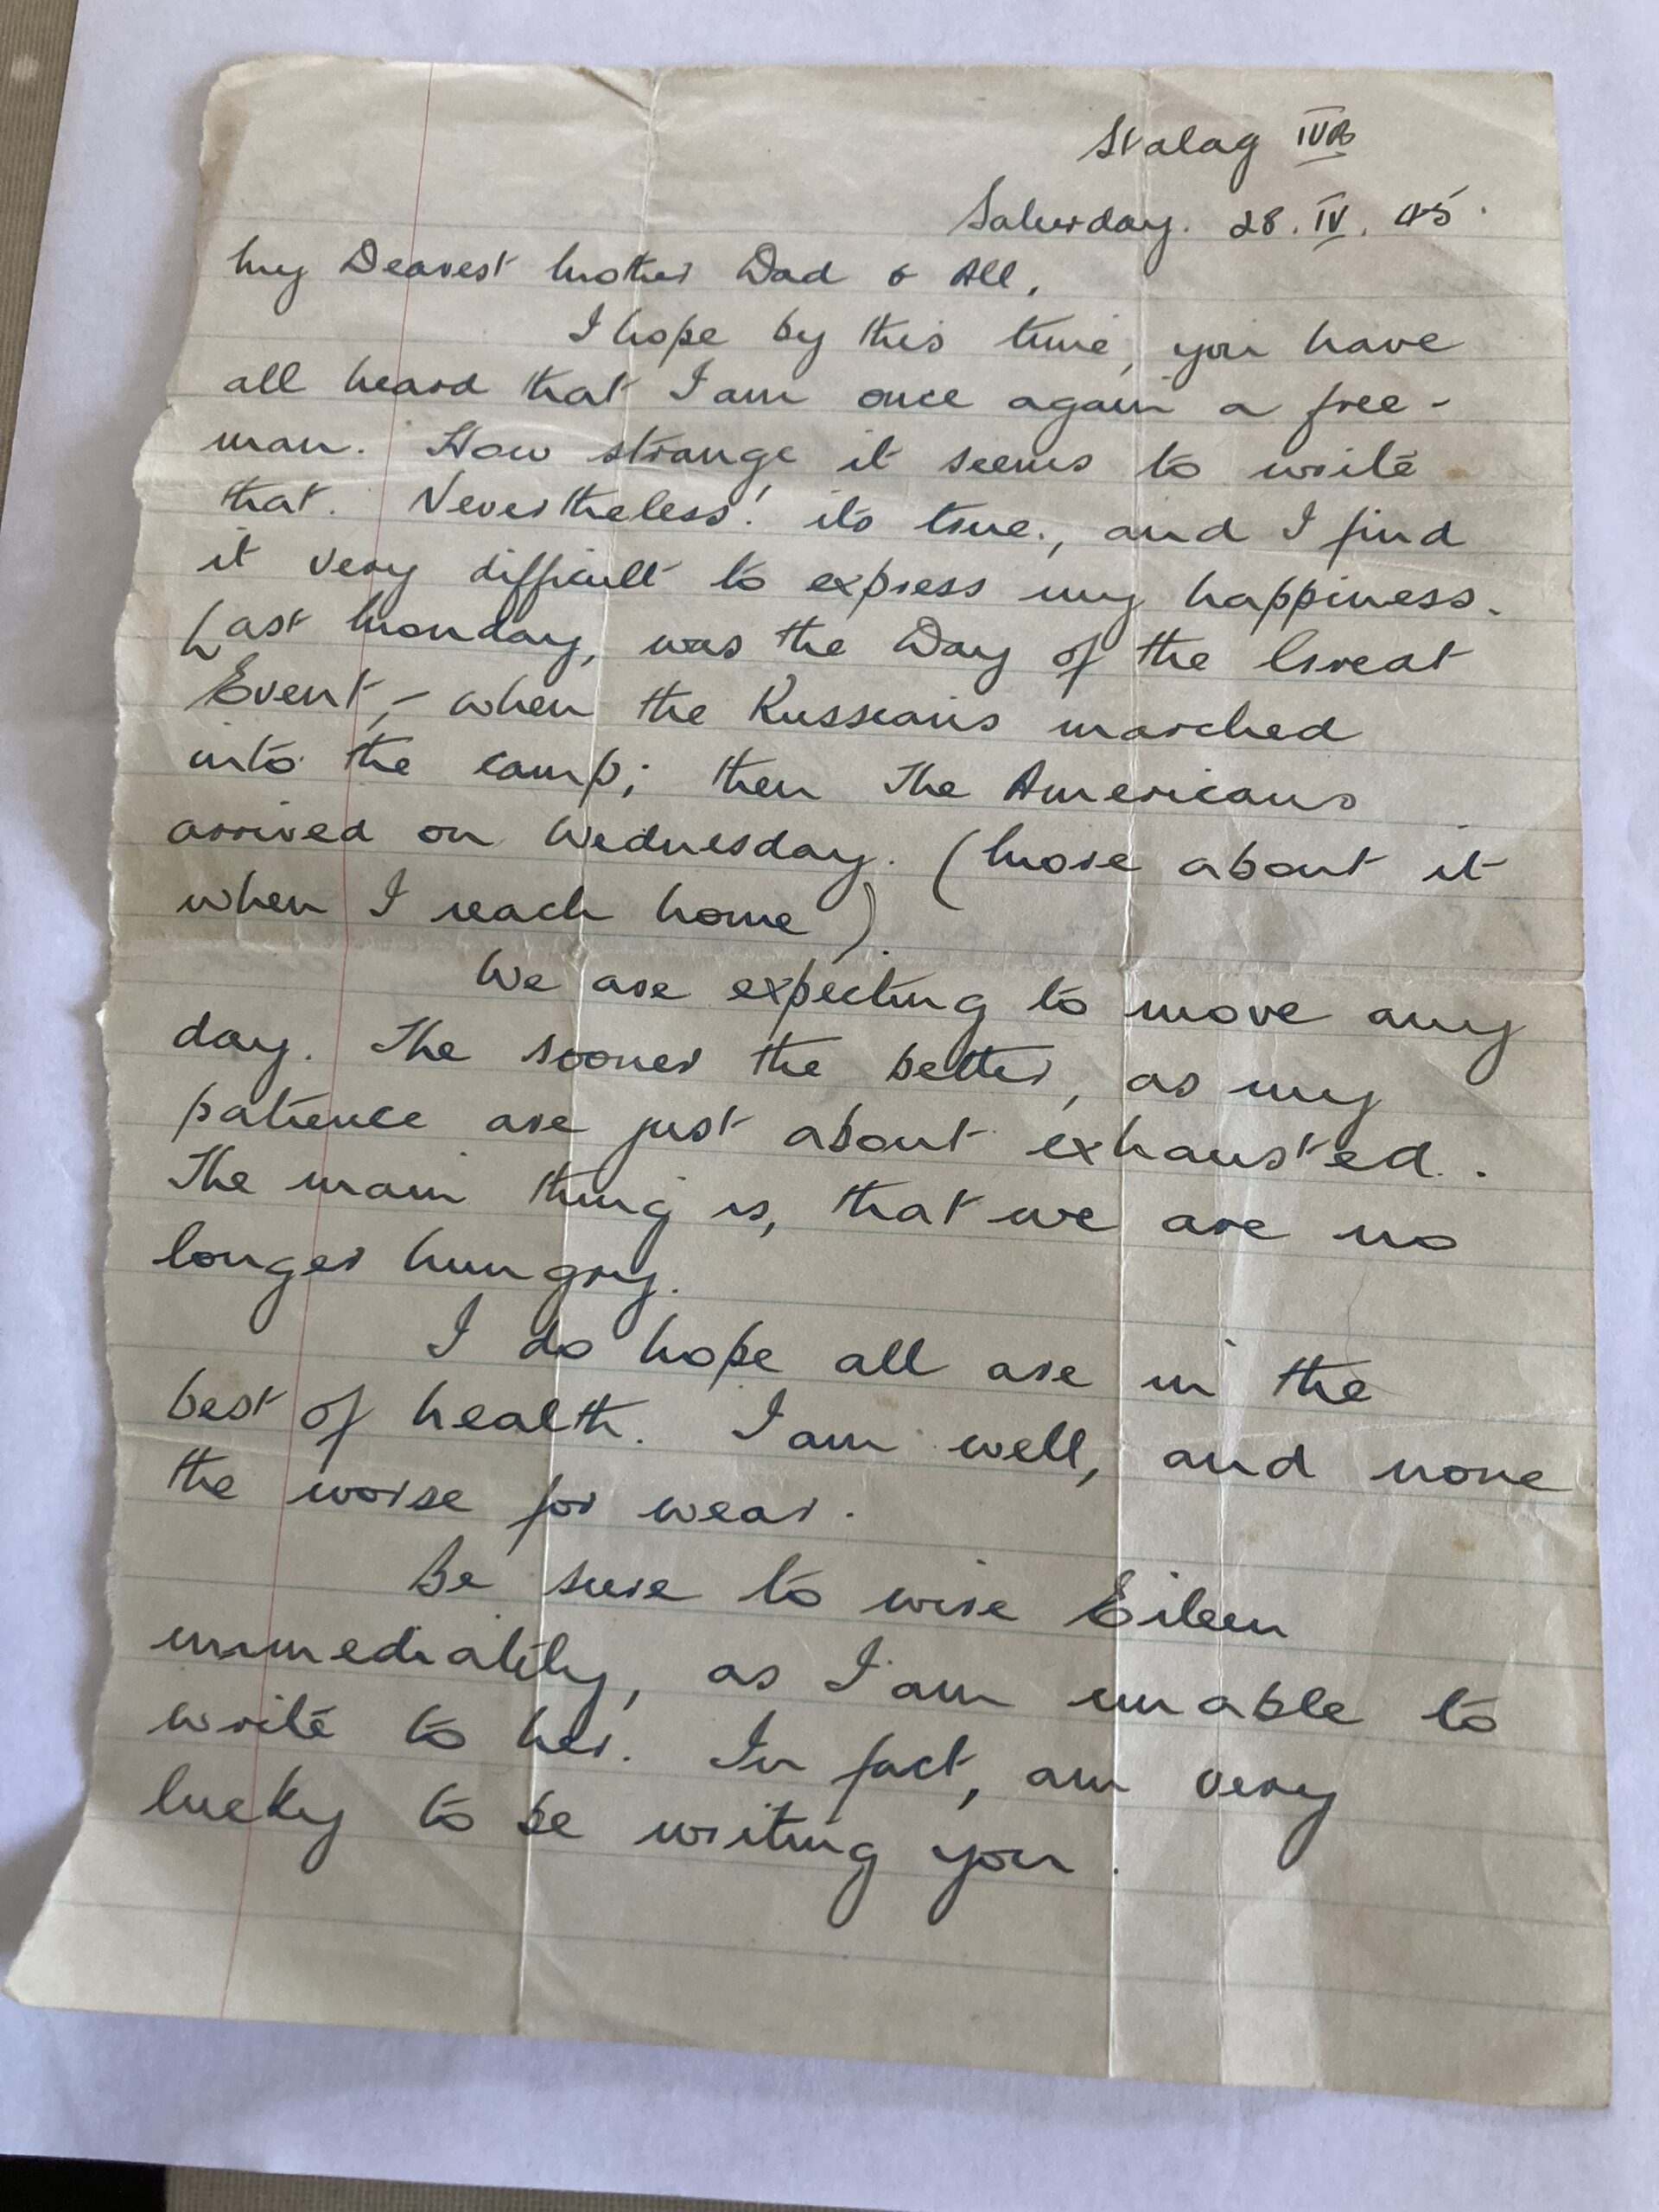 Stalag IVB
Saturday. 28. IV. 45.
My Dearest Mother Dad & All,
I hope by this time, you have
all heard that I am once again a free-
man. How strange it seems to write
that. Nevertheless! its true., and I find
it very difficult to express my happiness.
Last Monday, was the Day of the Great
Event, - when the Russians marched
into the camp; then The Americans
arrived on Wednesday. (More about it
when I reach home).
We are expecting to move any
day. The sooner the better, as my
patience are just about exhausted.
The main thing is, that we are no
longer hungry.
I do hope all are in the
best of health. I am well, and none
the worse for wear.
Be sure to wire Eileen
immediatily, as I am unable to
write to her. In fact, am very
lucky to be writing you.